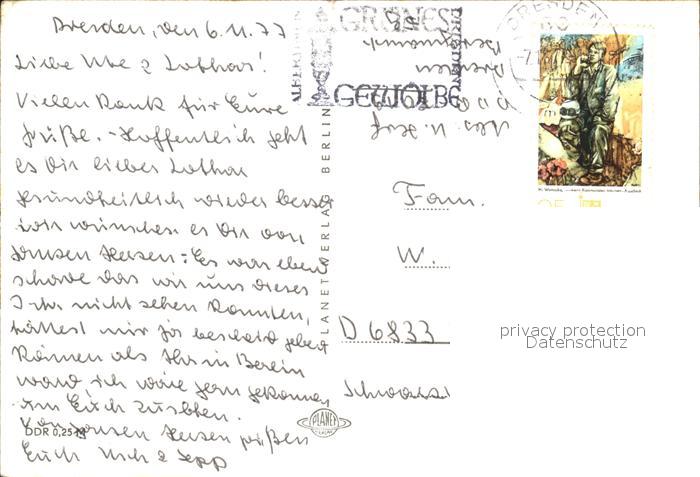 Dresden, den 6.11.77
Liebe Ute & Lothar!
Vielen Dank für Eure
Grüße. - Hoffentlich geht
es Dir lieber Lothar
gesundheitlich wieder besser
wir wünschen es Dir von
ganzen Herzen! Es war eben
schade das wir uns dieses
Jahr nicht sehen konnten,
hättest mir ja bescheid geben
können als Ihr in
ward, ich wäre gern gekommen
um Euch zu sehen.
Von ganzen Herzen grüßen
Euch Usch & Sepp
DDR 0,25 M
PLANET-VERLAG BERLIN
PLANET
GRÜNES
GEWÖLBE
DRESDEN
DRESDEN
Fam.
W.
D 6833
privacy protection
Datenschutz